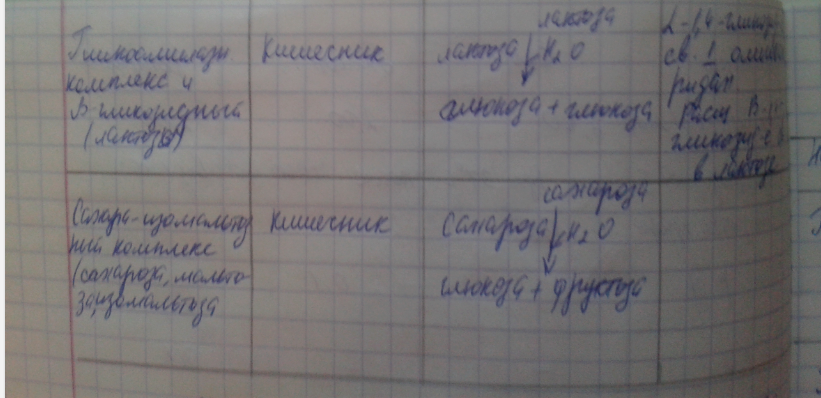 Гликоамилазн.
комплекс и
β-гликозидный
(лактоза)
Кишечник
лактоза
лактоза ↓ H₂O
глюкоза + глюкоза
α-1,4-глико
св.
ридах
расщ β-
в лактозе
Сахара-изомальтоз
ный комплекс
(сахароза, мальто
за, изомальтоза
Кишечник
сахароза
Сахароза ↓ H₂O
глюкоза + фруктоза